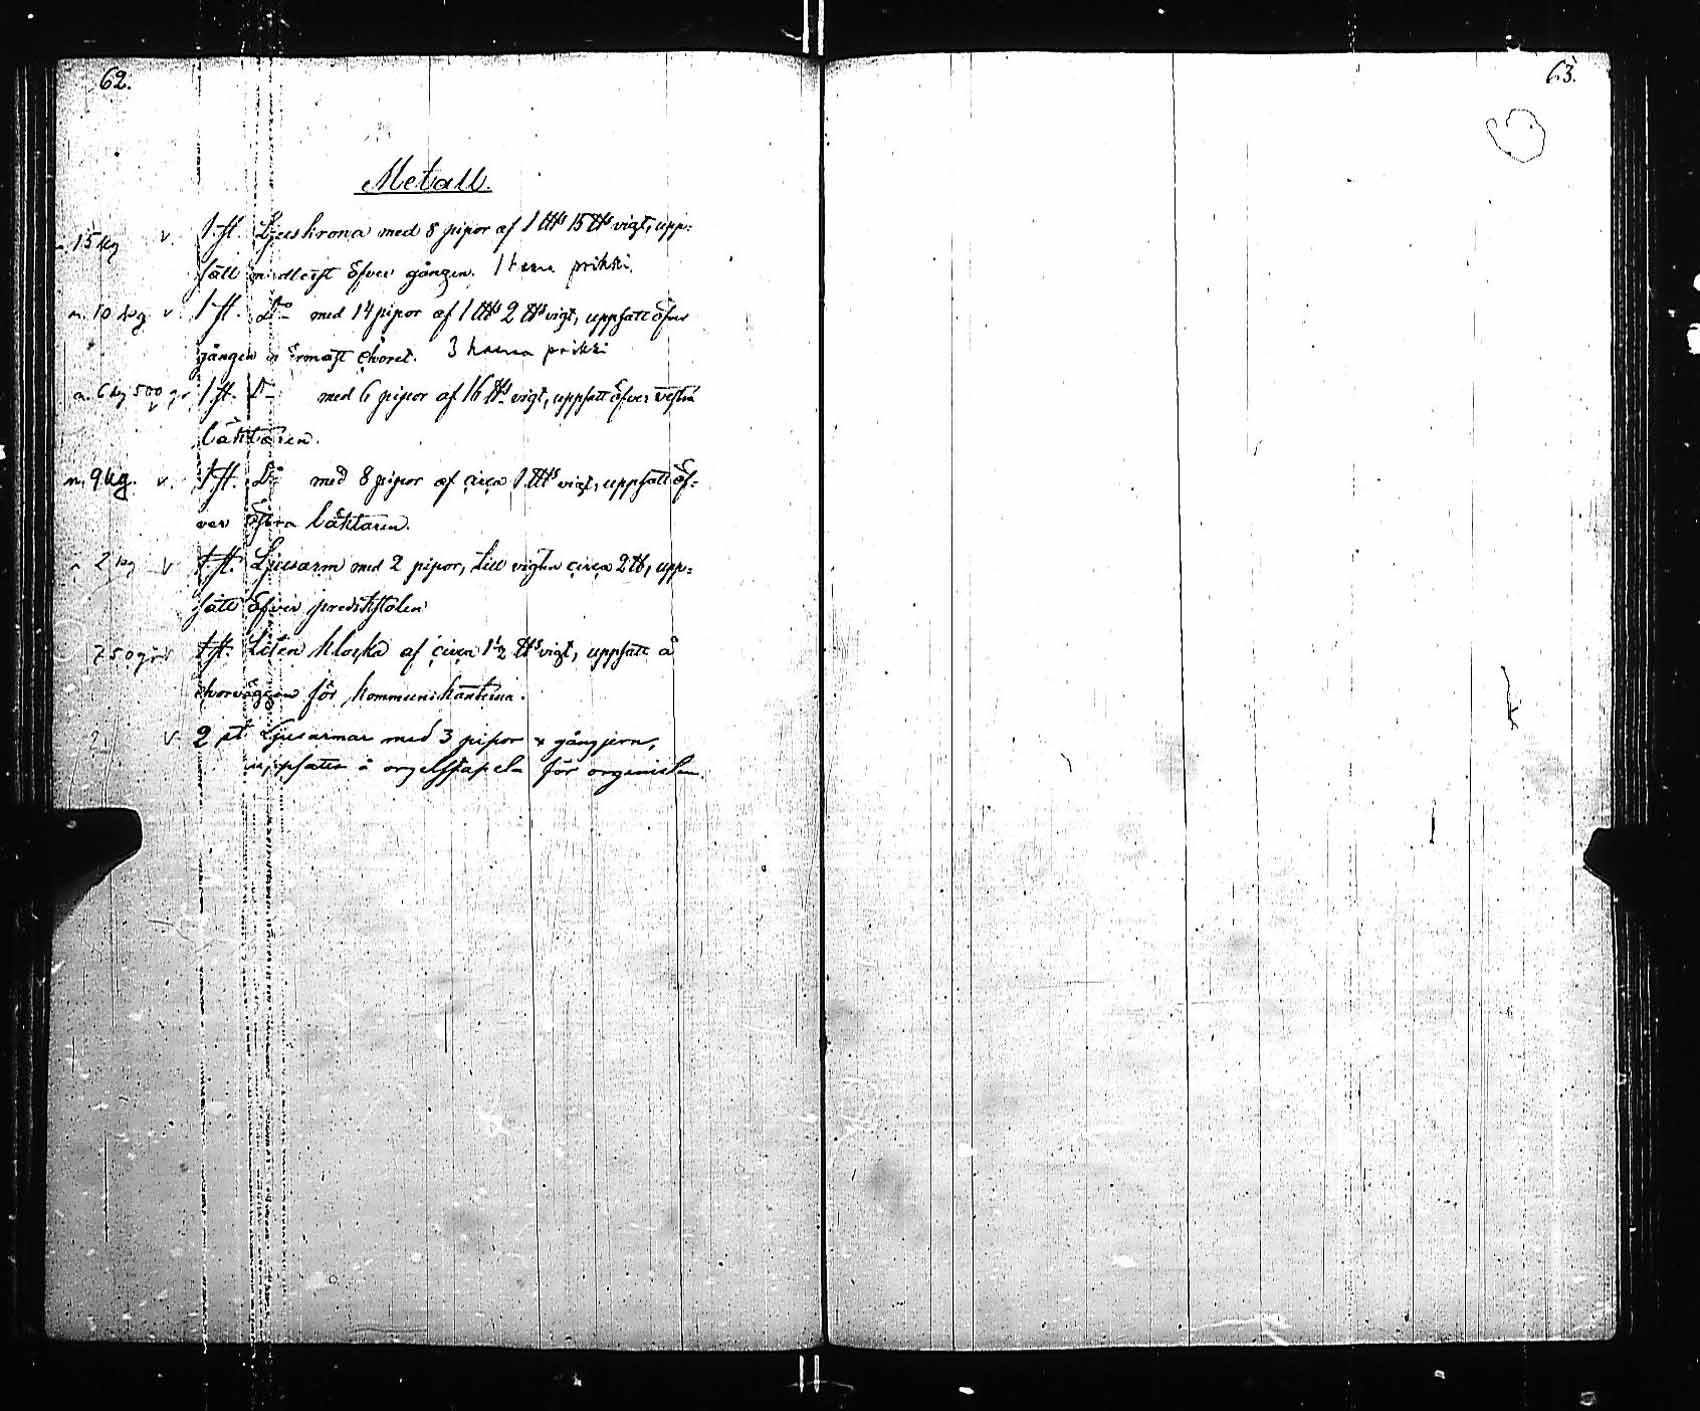 62.
63.
Metall.
15 kg v. 1 st. Ljuskrona med 8 pipor af 1 L℔ 15 ℔s vigt, upp-
satt medlerst öfver gången. prikki.
n. 10 kg v. 1 st. Do med 14 pipor af 1 L℔ 2 ℔s vigt, uppsatt öfver
gången närmast choret. 3 prikki
n. 6 kg 500 gr v 1 st. Do med 6 pipor af 16 ℔s vigt, uppsatt öfver vestra
läktaren.
n. 9 kg. v. 1 st. Do med 8 pipor af circa 1 L℔s vigt, uppsatt öf-
ver östra läktaren.
n 2 kg v 1 st. Ljusarm med 2 pipor, till vigten circa 2 ℔, upp-
satt öfver predikstolen
750 gr v 1 st. Liten klocka af circa 1 1/2 ℔s vigt, uppsatt å
chorväggen för kommunikanterna.
2 v. 2 st Ljusarmar med 3 pipor & gångjern,
uppsatta å orgelstapeln för organisten.